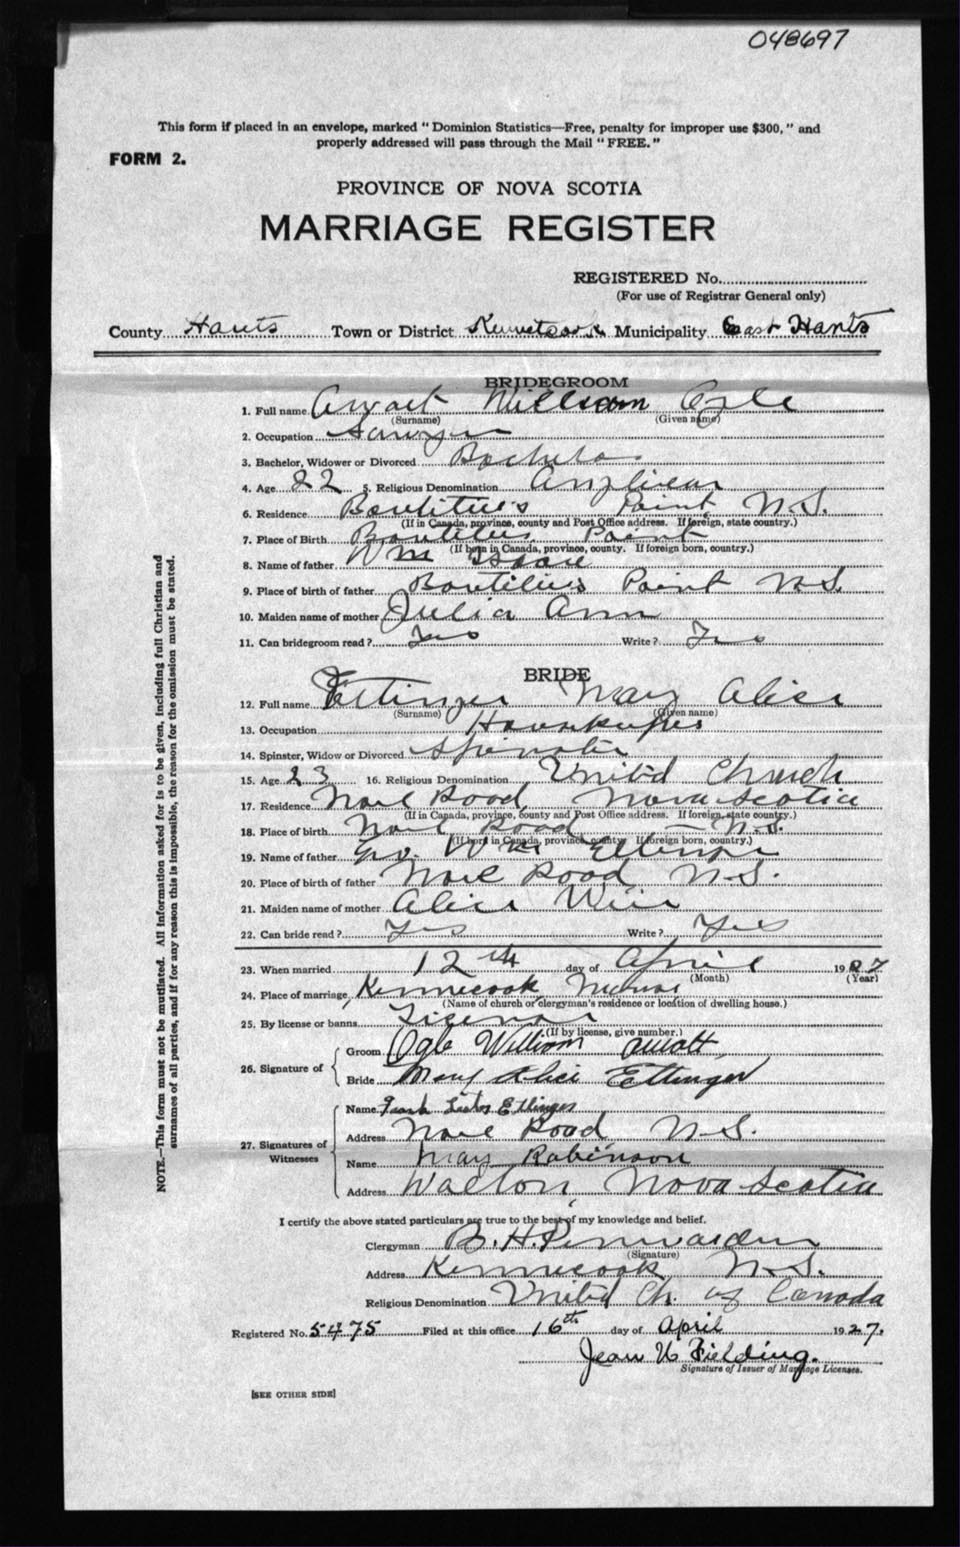 048697
This form if placed in an envelope, marked "Dominion Statistics—Free, penalty for improper use $300," and
properly addressed will pass through the Mail "FREE."
FORM 2.
PROVINCE OF NOVA SCOTIA
MARRIAGE REGISTER
REGISTERED No.
(For use of Registrar General only)
County Hants Town or District Kennetcook Municipality East Hants
BRIDEGROOM
1. Full name William Ogle
(Surname) (Given name)
2. Occupation Sawyer
3. Bachelor, Widower or Divorced Bachelor
4. Age 22 5. Religious Denomination Anglican
6. Residence Boutiliers Point N.S.
(If in Canada, province, county and Post Office address. If foreign, state country.)
7. Place of Birth Boutiliers Point
(If born in Canada, province, county. If foreign born, country.)
8. Name of father Wm Isaac
9. Place of birth of father Boutiliers Point N.S.
10. Maiden name of mother Julia Ann
11. Can bridegroom read? Yes Write? Yes
BRIDE
12. Full name Ettinger Mary Alice
(Surname) (Given name)
13. Occupation Housekeeper
14. Spinster, Widow or Divorced Spinster
15. Age 23 16. Religious Denomination United Church
17. Residence Noel Road, Nova Scotia
(If in Canada, province, county and Post Office address. If foreign, state country.)
18. Place of birth Noel Road N.S.
(If born in Canada, province, county. If foreign born, country.)
19. Name of father Geo. Wm Ettinger
20. Place of birth of father Noel Road N.S.
21. Maiden name of mother Alice Weir
22. Can bride read? Yes Write? Yes
23. When married 12th day of April 1927
(Month) (Year)
24. Place of marriage Kennecook Manse
(Name of church or clergyman's residence or location of dwelling house.)
25. By license or banns License
(If by license, give number.)
26. Signature of
Groom Ogle William
Bride Mary Alice Ettinger
27. Signatures of
Witnesses
Name Frank Ettinger
Address Noel Road, N.S.
Name Mary Robinson
Address Walton, Nova Scotia
I certify the above stated particulars are true to the best of my knowledge and belief.
Clergyman B. H. Penwarden
(Signature)
Address Kennecook N.S.
Religious Denomination United Ch. of Canada
Registered No. 5475 Filed at this office 16th day of April 1927.
Jean Fielding.
Signature of Issuer of Marriage Licenses.
[SEE OTHER SIDE]
NOTE.—This form must not be mutilated. All information asked for is to be given, including full Christian and
surnames of all parties, and if for any reason this is impossible, the reason for the omission must be stated.